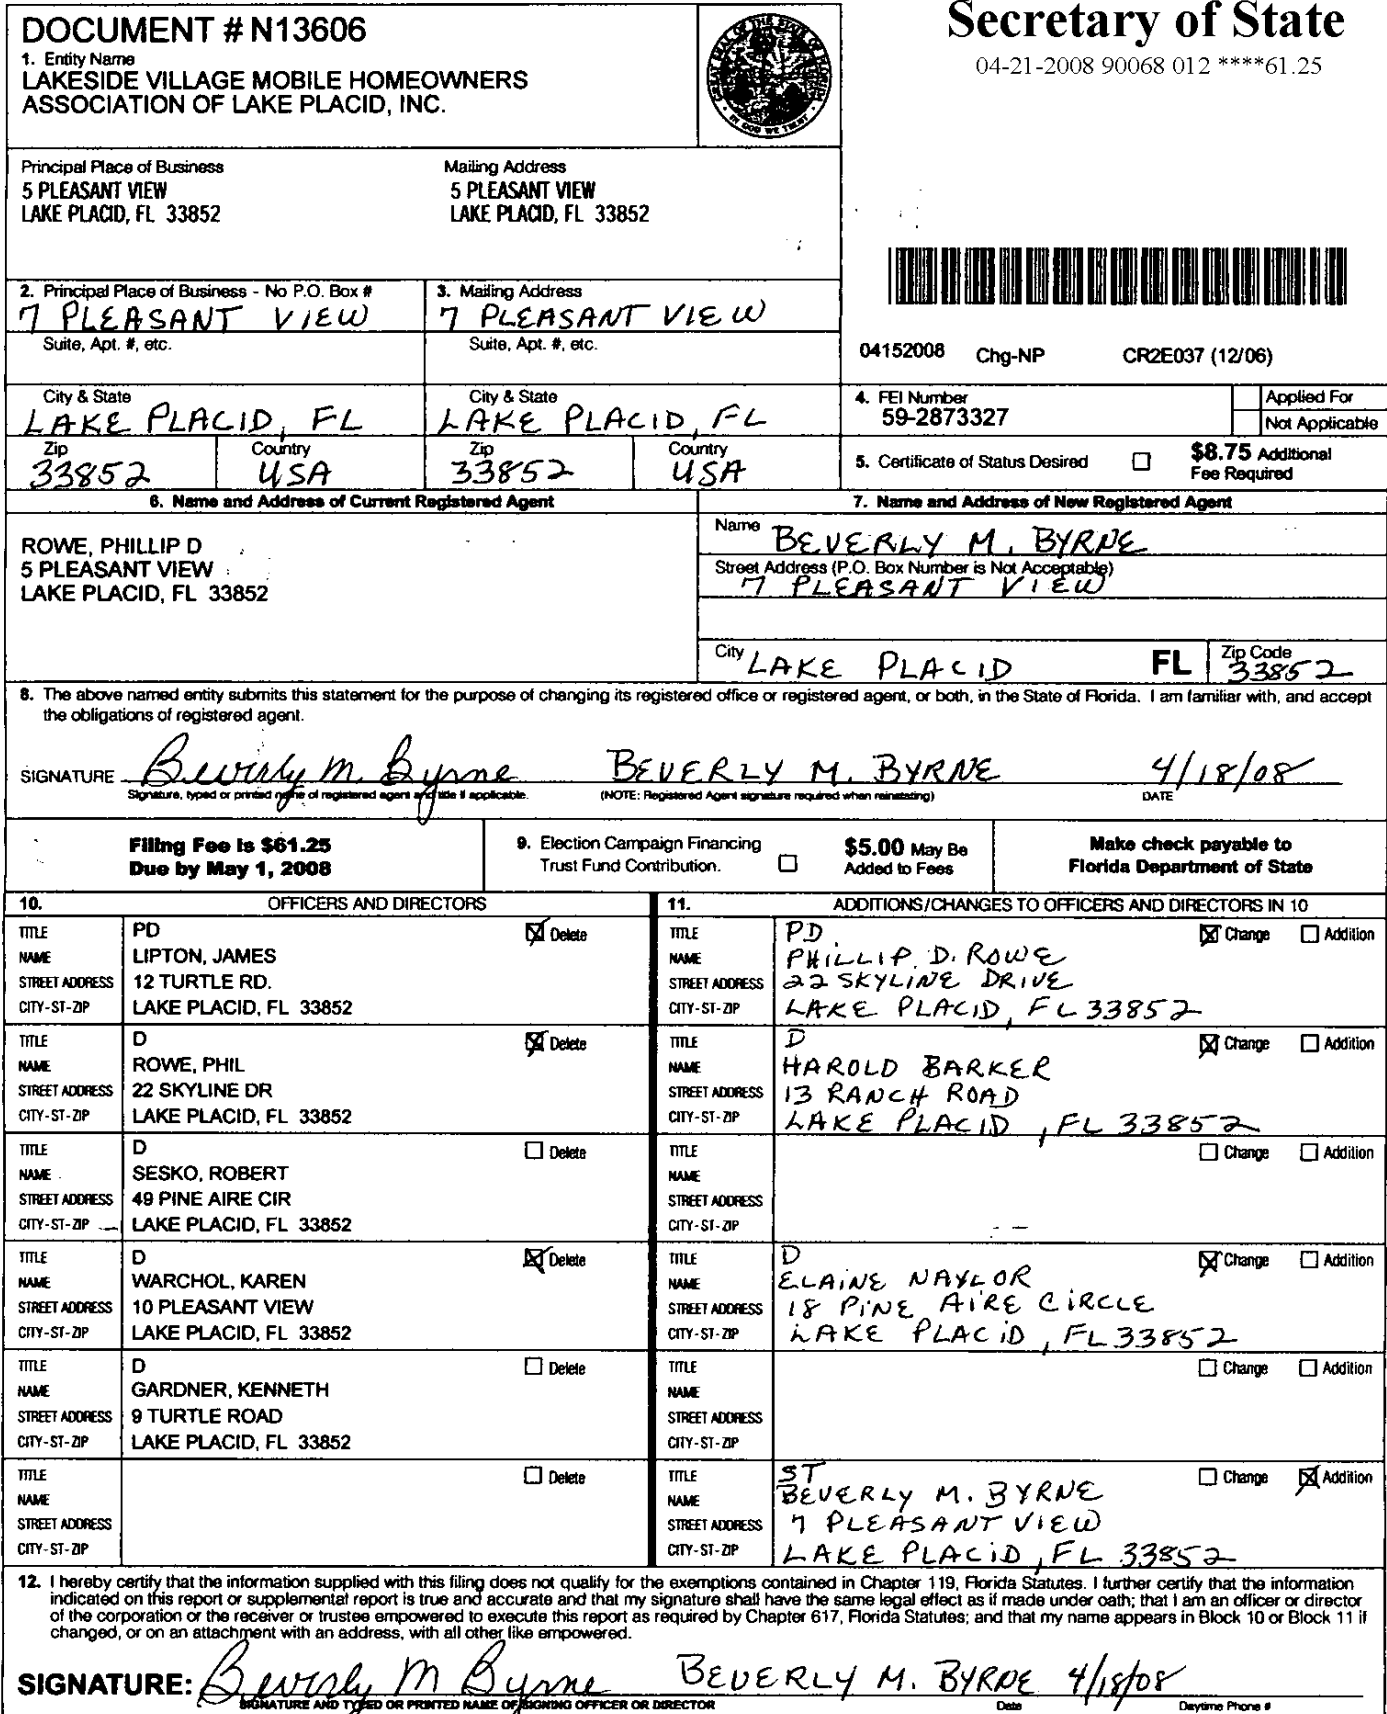 DOCUMENT # N13606
1. Entity Name
LAKESIDE VILLAGE MOBILE HOMEOWNERS
ASSOCIATION OF LAKE PLACID, INC.
GREAT SEAL OF THE STATE OF FLORIDA
IN GOD WE TRUST
Secretary of State
04-21-2008 90068 012 ****61.25
Principal Place of Business
5 PLEASANT VIEW
LAKE PLACID, FL 33852
Mailing Address
5 PLEASANT VIEW
LAKE PLACID, FL 33852
2. Principal Place of Business - No P.O. Box #
7 PLEASANT VIEW
3. Mailing Address
7 PLEASANT VIEW
Suite, Apt. #, etc.
Suite, Apt. #, etc.
04152008 Chg-NP CR2E037 (12/06)
City & State
LAKE PLACID, FL
City & State
LAKE PLACID, FL
4. FEI Number
59-2873327
Applied For
Not Applicable
Zip
33852
Country
USA
Zip
33852
Country
USA
5. Certificate of Status Desired
$8.75 Additional
Fee Required
6. Name and Address of Current Registered Agent
ROWE, PHILLIP D
5 PLEASANT VIEW
LAKE PLACID, FL 33852
7. Name and Address of New Registered Agent
Name BEVERLY M. BYRNE
Street Address (P.O. Box Number is Not Acceptable)
7 PLEASANT VIEW
City LAKE PLACID FL Zip Code 33852
8. The above named entity submits this statement for the purpose of changing its registered office or registered agent, or both, in the State of Florida. I am familiar with, and accept
the obligations of registered agent.
SIGNATURE Beverly M. Byrne BEVERLY M. BYRNE 4/18/08
Signature, typed or printed name of registered agent and title if applicable. (NOTE: Registered Agent signature required when reinstating) DATE
Filing Fee is $61.25
Due by May 1, 2008
9. Election Campaign Financing
Trust Fund Contribution.
$5.00 May Be
Added to Fees
Make check payable to
Florida Department of State
10. OFFICERS AND DIRECTORS
11. ADDITIONS/CHANGES TO OFFICERS AND DIRECTORS IN 10
TITLE PD Delete
NAME LIPTON, JAMES
STREET ADDRESS 12 TURTLE RD.
CITY-ST-ZIP LAKE PLACID, FL 33852
TITLE PD Change Addition
NAME PHILLIP D. ROWE
STREET ADDRESS 22 SKYLINE DRIVE
CITY-ST-ZIP LAKE PLACID, FL 33852
TITLE D Delete
NAME ROWE, PHIL
STREET ADDRESS 22 SKYLINE DR
CITY-ST-ZIP LAKE PLACID, FL 33852
TITLE D Change Addition
NAME HAROLD BARKER
STREET ADDRESS 13 RANCH ROAD
CITY-ST-ZIP LAKE PLACID, FL 33852
TITLE D Delete
NAME SESKO, ROBERT
STREET ADDRESS 49 PINE AIRE CIR
CITY-ST-ZIP LAKE PLACID, FL 33852
TITLE Change Addition
NAME
STREET ADDRESS
CITY-ST-ZIP
TITLE D Delete
NAME WARCHOL, KAREN
STREET ADDRESS 10 PLEASANT VIEW
CITY-ST-ZIP LAKE PLACID, FL 33852
TITLE D Change Addition
NAME ELAINE NAYLOR
STREET ADDRESS 18 PINE AIRE CIRCLE
CITY-ST-ZIP LAKE PLACID, FL 33852
TITLE D Delete
NAME GARDNER, KENNETH
STREET ADDRESS 9 TURTLE ROAD
CITY-ST-ZIP LAKE PLACID, FL 33852
TITLE Change Addition
NAME
STREET ADDRESS
CITY-ST-ZIP
TITLE Delete
NAME
STREET ADDRESS
CITY-ST-ZIP
TITLE ST Change Addition
NAME BEVERLY M. BYRNE
STREET ADDRESS 7 PLEASANT VIEW
CITY-ST-ZIP LAKE PLACID, FL 33852
12. I hereby certify that the information supplied with this filing does not qualify for the exemptions contained in Chapter 119, Florida Statutes. I further certify that the information
indicated on this report or supplemental report is true and accurate and that my signature shall have the same legal effect as if made under oath; that I am an officer or director
of the corporation or the receiver or trustee empowered to execute this report as required by Chapter 617, Florida Statutes; and that my name appears in Block 10 or Block 11 if
changed, or on an attachment with an address, with all other like empowered.
SIGNATURE: Beverly M Byrne BEVERLY M. BYRNE 4/18/08
SIGNATURE AND TYPED OR PRINTED NAME OF SIGNING OFFICER OR DIRECTOR Date Daytime Phone #